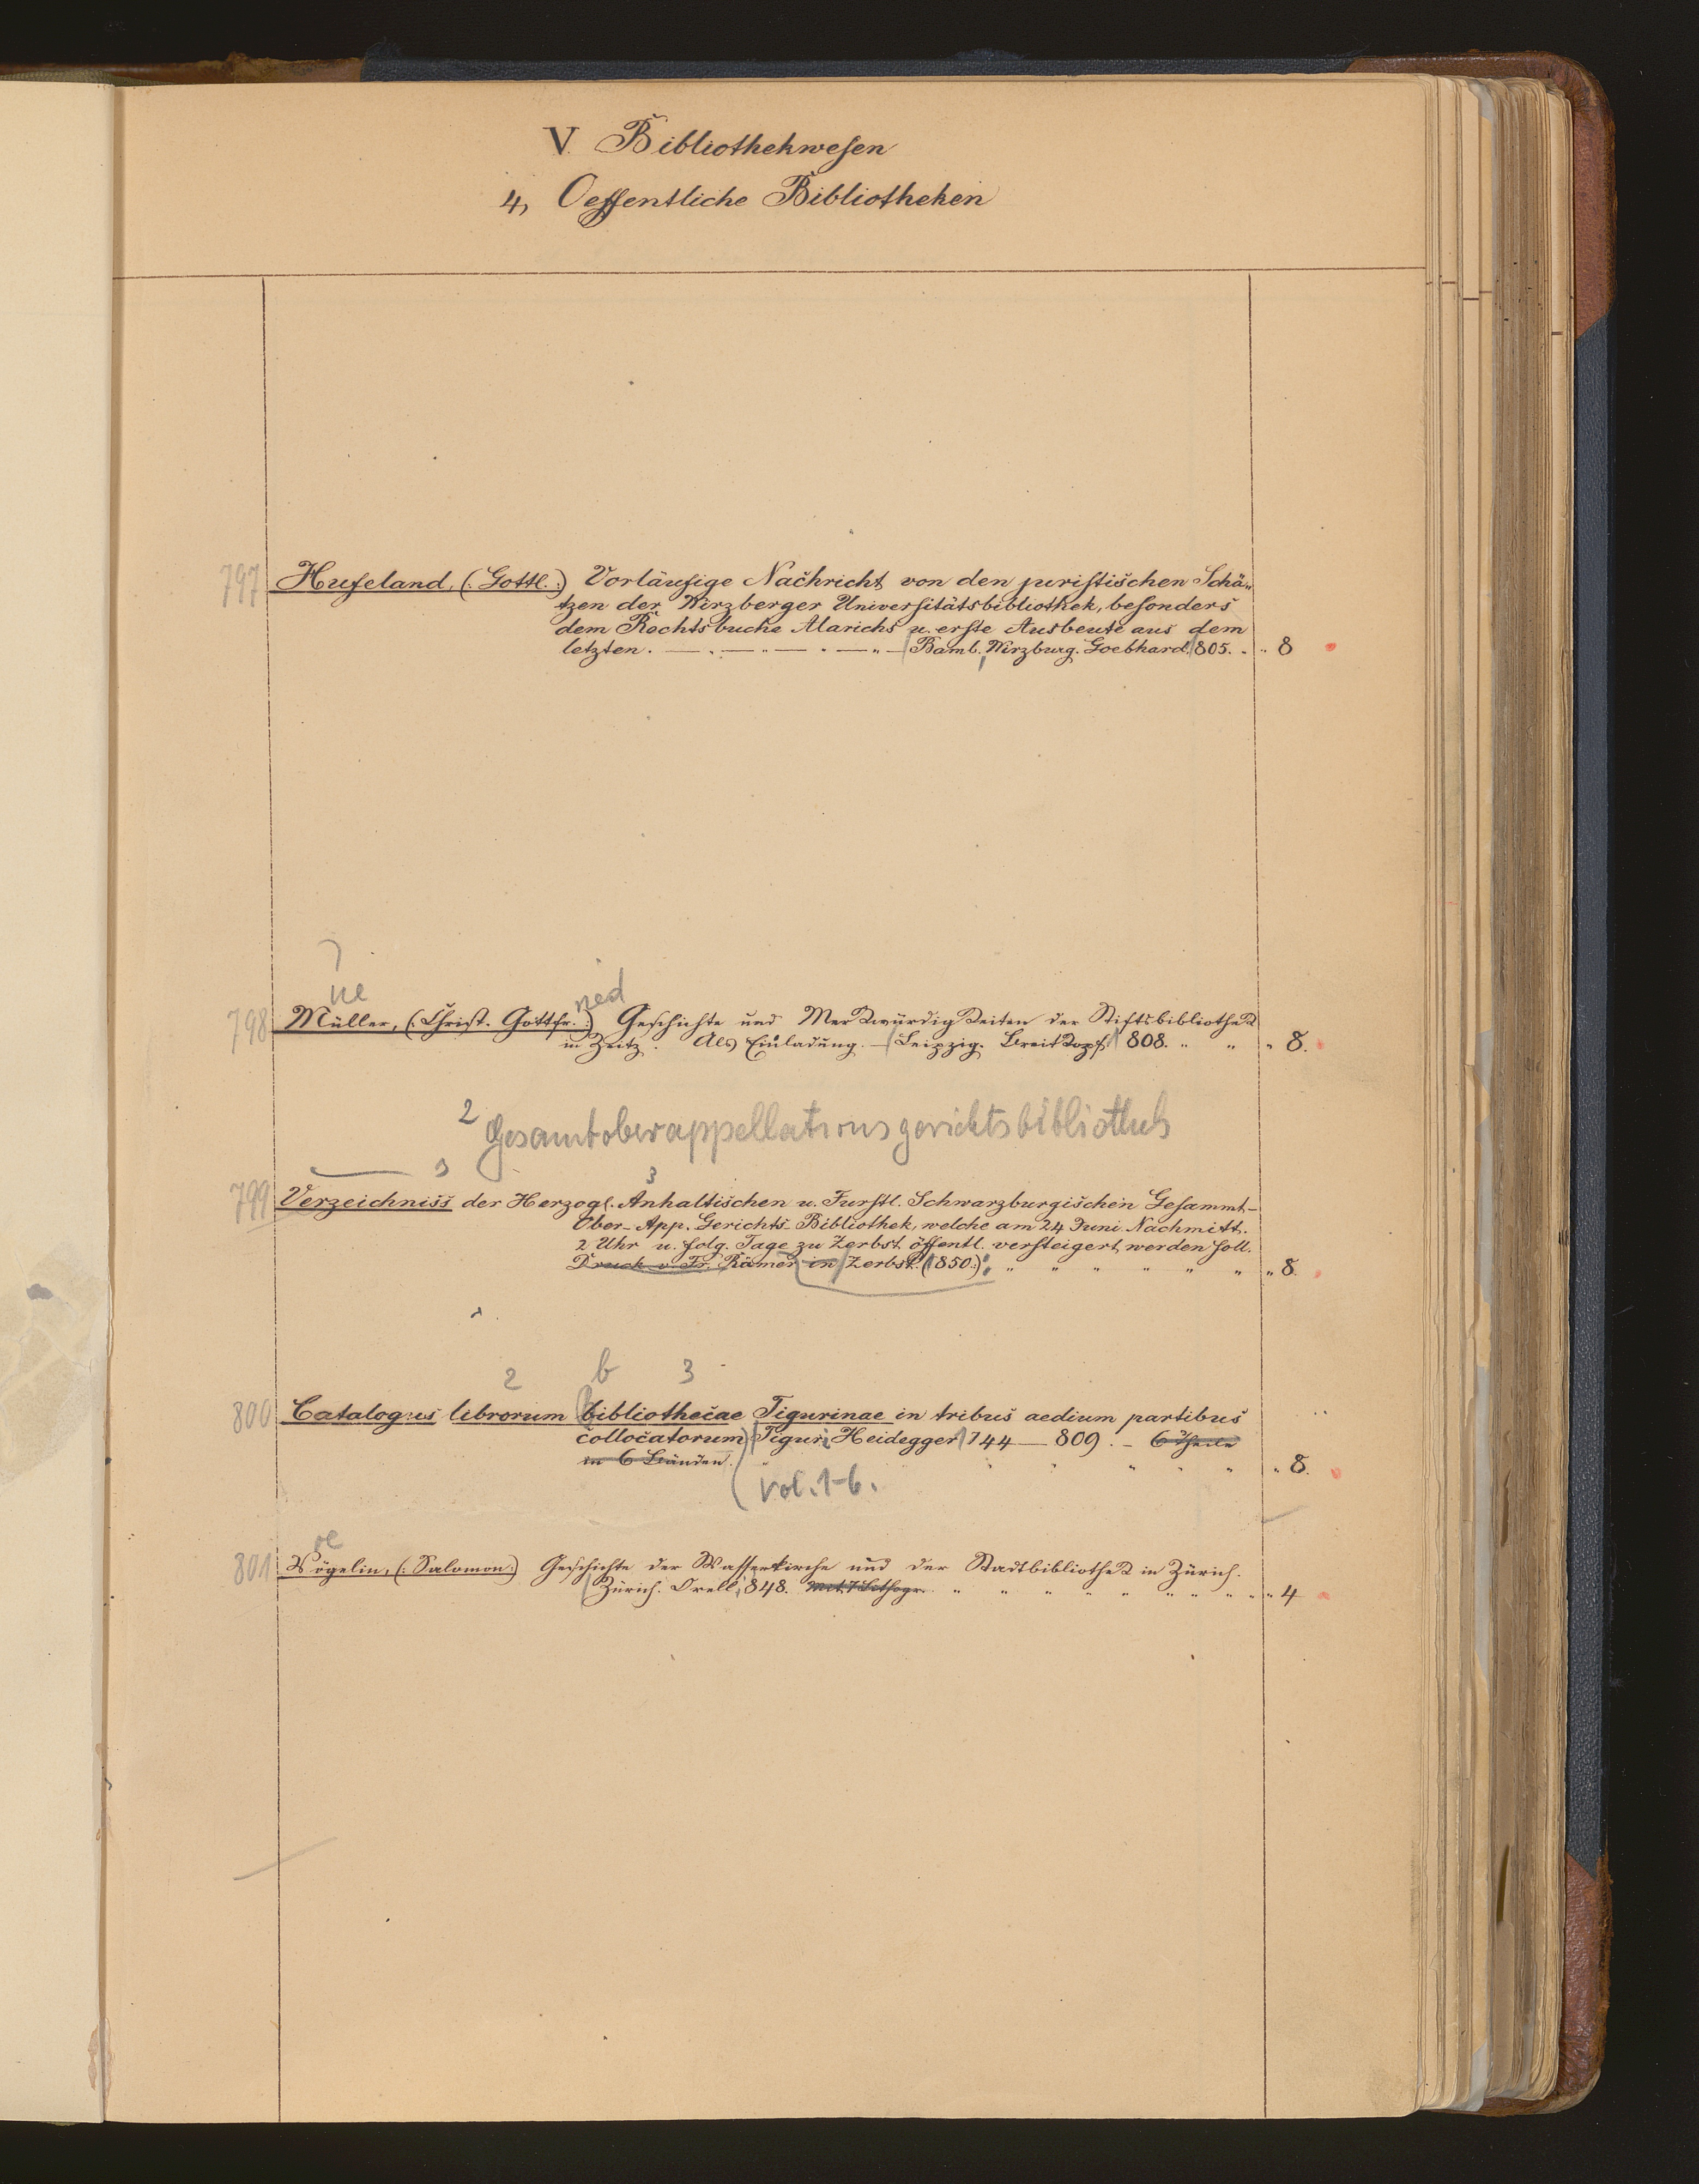 V. Bibliothekwesen
4, Oeffentliche Bibliotheken
797 Hufeland, (: Gottl. :) Vorläufige Nachricht von den juristischen Schä-
tzen der Wirzberger Universitätsbibliothek, besonders
dem Rechtsbuche Alarichs u. erste Ausbeute aus dem
letzten. — Bamb. Wirzburg. Goebhard. 805. 8
ue
ned
798 Müller, (: Christ. Gottfr. :) Geschichte und Merkwürdigkeiten der Stiftsbibliothek
in Zeitz. Als Einladung. — Leipzig. Breitkopf. 808. " " " 8.
2 Gesamtoberappellationsgerichtsbibliothek
3 3
799 Verzeichniss der Herzogl. Anhaltischen u. Furstl. Schwarzburgischen Gesammt-
Ober-App. Gerichts-Bibliothek, welche am 24 Juni Nachmitt.
2 Uhr u. folg. Tage zu Zerbst öffentl. versteigert werden soll.
Druck v. Fr. Römer in Zerbst. (1850:) " " " " " " " 8.
2 b 3
800 Catalogus librorum bibliothecae Tigurinae in tribus aedium partibus
collocatorum) Tiguri Heidegger 744 — 809. – 6 Theile
in 6 Bänden. " " " " " 8.
vol. 1-6.
oe
801 Vögelin, (: Salomon :) Geschichte der Wasserkirche und der Stadtbibliothek in Zürich.
Zürich. Orell, 848. Mit 7 Lithogr. " " " " " " " " " 4